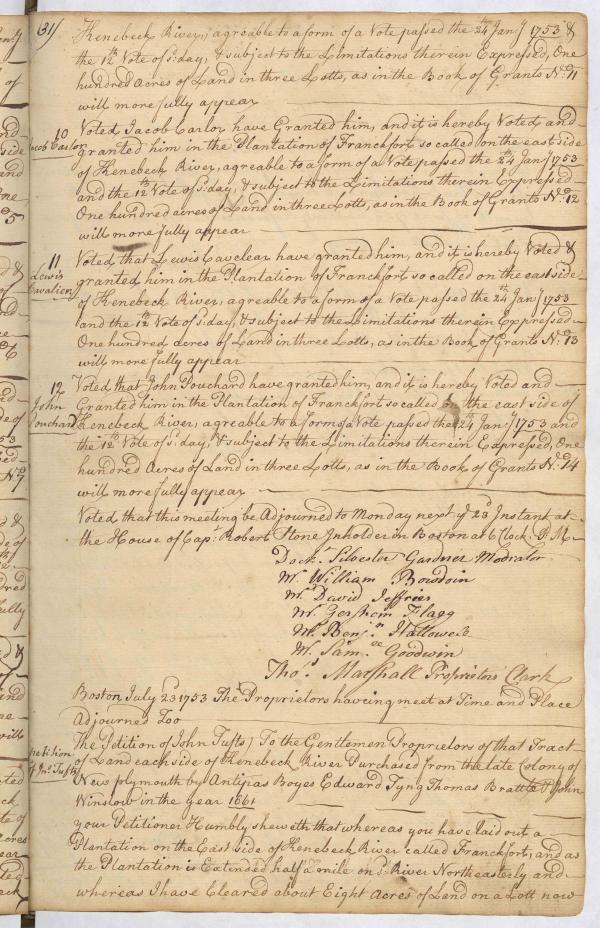 (31)
Kenebeck River, agreeable to a form of a Vote passed the 24th Janry 1753 &
the 12th Vote of sd. day, & subject to the Limitations therein Expressed, One
hundred Acres of Land in three Lotts, as in the Book of Grants No. 11
will more fully appear
10
Jacob Carlor
Voted Jacob Carlor have Granted him, and it is hereby Voted and
granted him in the Plantation of Franckfort so called on the east side
of Kenebeck River, agreeable to a form of a Vote passed the 24th Janry 1753
and the 12th Vote of sd. day, & subject to the Limitations therein Expressed
One hundred acres of Land in three Lotts, as in the Book of Grants No. 12
will more fully appear
11
Lewis
Cavalier
Voted, that Lewis Cavelear have granted him, and it is hereby Voted &
granted him in the Plantation of Franckfort so called on the east side
of Kenebeck River, agreeable to a form of a Vote passed the 24th Janry 1753
and the 12th Vote of sd. day, & subject to the Limitations therein Expressed
One hundred acres of Land in three Lotts, as in the Book of Grants No. 13
will more fully appear
12
John
Pouchard
Voted that John Pouchard have granted him, and it is hereby Voted and
Granted him in the Plantation of Franckfort so called on the east side of
Kenebeck River, agreeable to a form of a Vote passed the 24th Janry 1753 and
the 12th Vote of sd. day, & subject to the Limitations therein Expressed, One
hundred Acres of Land in three Lotts, as in the Book of Grants No. 14
will more fully appear
Voted that this meeting be Adjourned to Monday next ye 23d Instant at
the House of Capt. Robert Stone Inholder in Boston at 6 Clock. P.M.
Dockr. Silvester Gardner Modrator
Mr. William Bowdoin
Mr. David Jeffries
Mr. Gershom Flagg
Mr. Benjn. Hallowell
Mr. Samll. Goodwin
Thos. Marshall Proprietors Clark
Boston July 23 1753 The Proprietors having meet at Time and Place
Adjourned Too
petition
of Jno. Tufts
The Petition of John Tufts) To the Gentlemen Proprietors of that Tract
of Land each side of Kenebeck River Purchased from the late Colony of
New plymouth by Antipas Boyes Edward Tyng Thomas Brattle & John
Winslow in the year 1661
your Petitioner Humbly sheweth that whereas you have laid out a
Plantation on the East side of Kenebeck River called Franckfort, and as
the Plantation is Extended half a mile on sd. River Northeasterly and
whereas I have Cleared about Eight Acres of Land on a Lott now